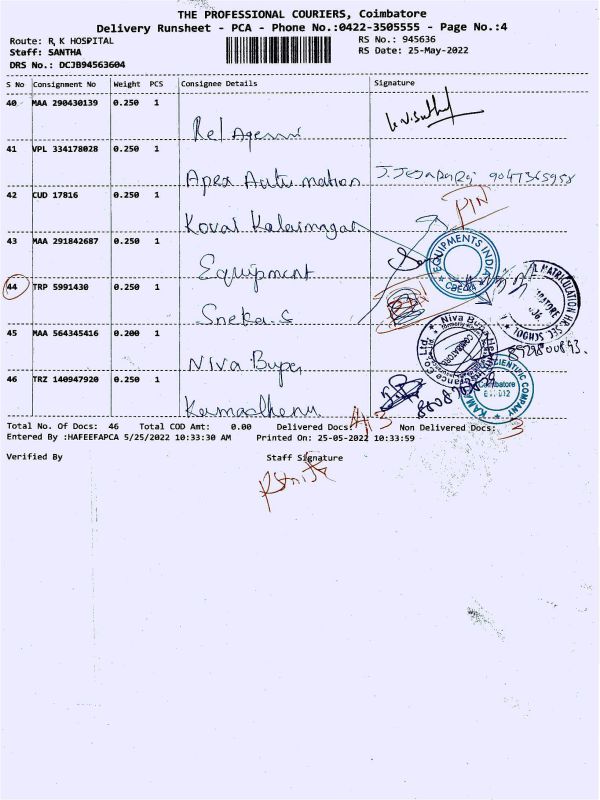 THE PROFESSIONAL COURIERS, Coimbatore
Delivery Runsheet - PCA - Phone No.:0422-3505555 - Page No.:4
Route: R K HOSPITAL
RS No.: 945636
Staff: SANTHA
RS Date: 25-May-2022
DRS No.: DCJB94563604
S No Consignment No Weight PCS Consignee Details Signature
40 MAA 290430139 0.250 1
Rel Agenni
41 VPL 334178028 0.250 1
Apex Automation J. Jesaparaj 9047365958
42 CUD 17816 0.250 1
Kovai Kalaimagar PIN
43 MAA 291842687 0.250 1
Equipment
EQUIPMENTS INDIA
CBE
44 TRP 5991430 0.250 1
Sneka.S
MATRICULATION HR. SEC. SCHOOL
45 MAA 564345416 0.200 1
Niva Bupa
Niva Bupa
8929800893.
46 TRZ 140947920 0.250 1
Kamadhenu
SCIENTIFIC COMPANY
Coimbatore
Total No. Of Docs: 46 Total COD Amt: 0.00 Delivered Docs: 43 Non Delivered Docs: 3
Entered By :HAFEEFAPCA 5/25/2022 10:33:30 AM Printed On: 25-05-2022 10:33:59
Verified By Staff Signature